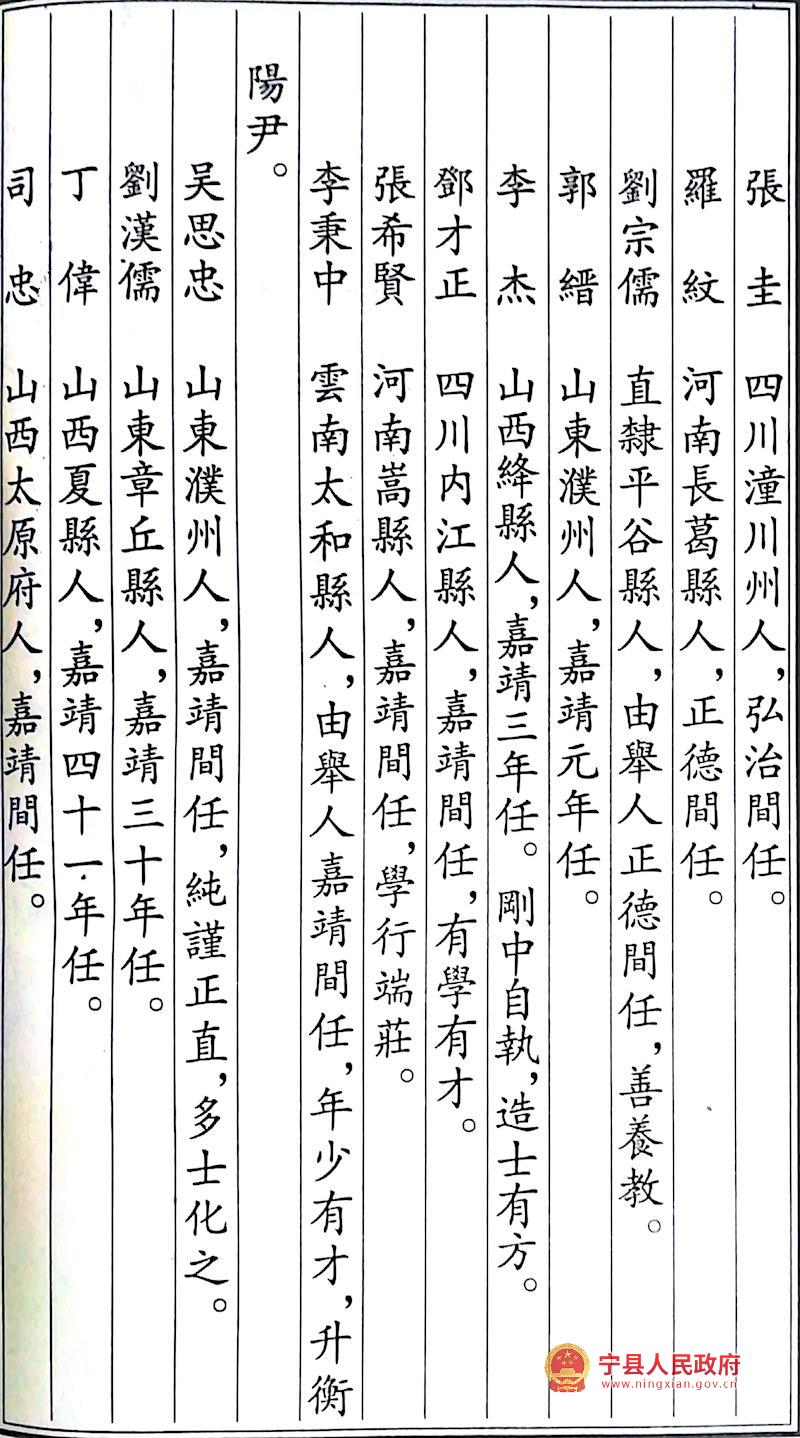 張　圭　四川潼川州人，弘治間任。
羅　紋　河南長葛縣人，正德間任。
劉宗儒　直隸平谷縣人，由舉人正德間任，善養教。
郭　縉　山東濮州人，嘉靖元年任。
李　杰　山西絳縣人，嘉靖三年任。剛中自執，造士有方。
鄧才正　四川内江縣人，嘉靖間任，有學有才。
張希賢　河南嵩縣人，嘉靖間任，學行端莊。
李秉中　雲南太和縣人，由舉人嘉靖間任，年少有才，升衡
陽尹。
吴思忠　山東濮州人，嘉靖間任，純謹正直，多士化之。
劉漢儒　山東章丘縣人，嘉靖三十年任。
丁　偉　山西夏縣人，嘉靖四十一年任。
司　忠　山西太原府人，嘉靖間任。
宁县人民政府
www.ningxian.gov.cn